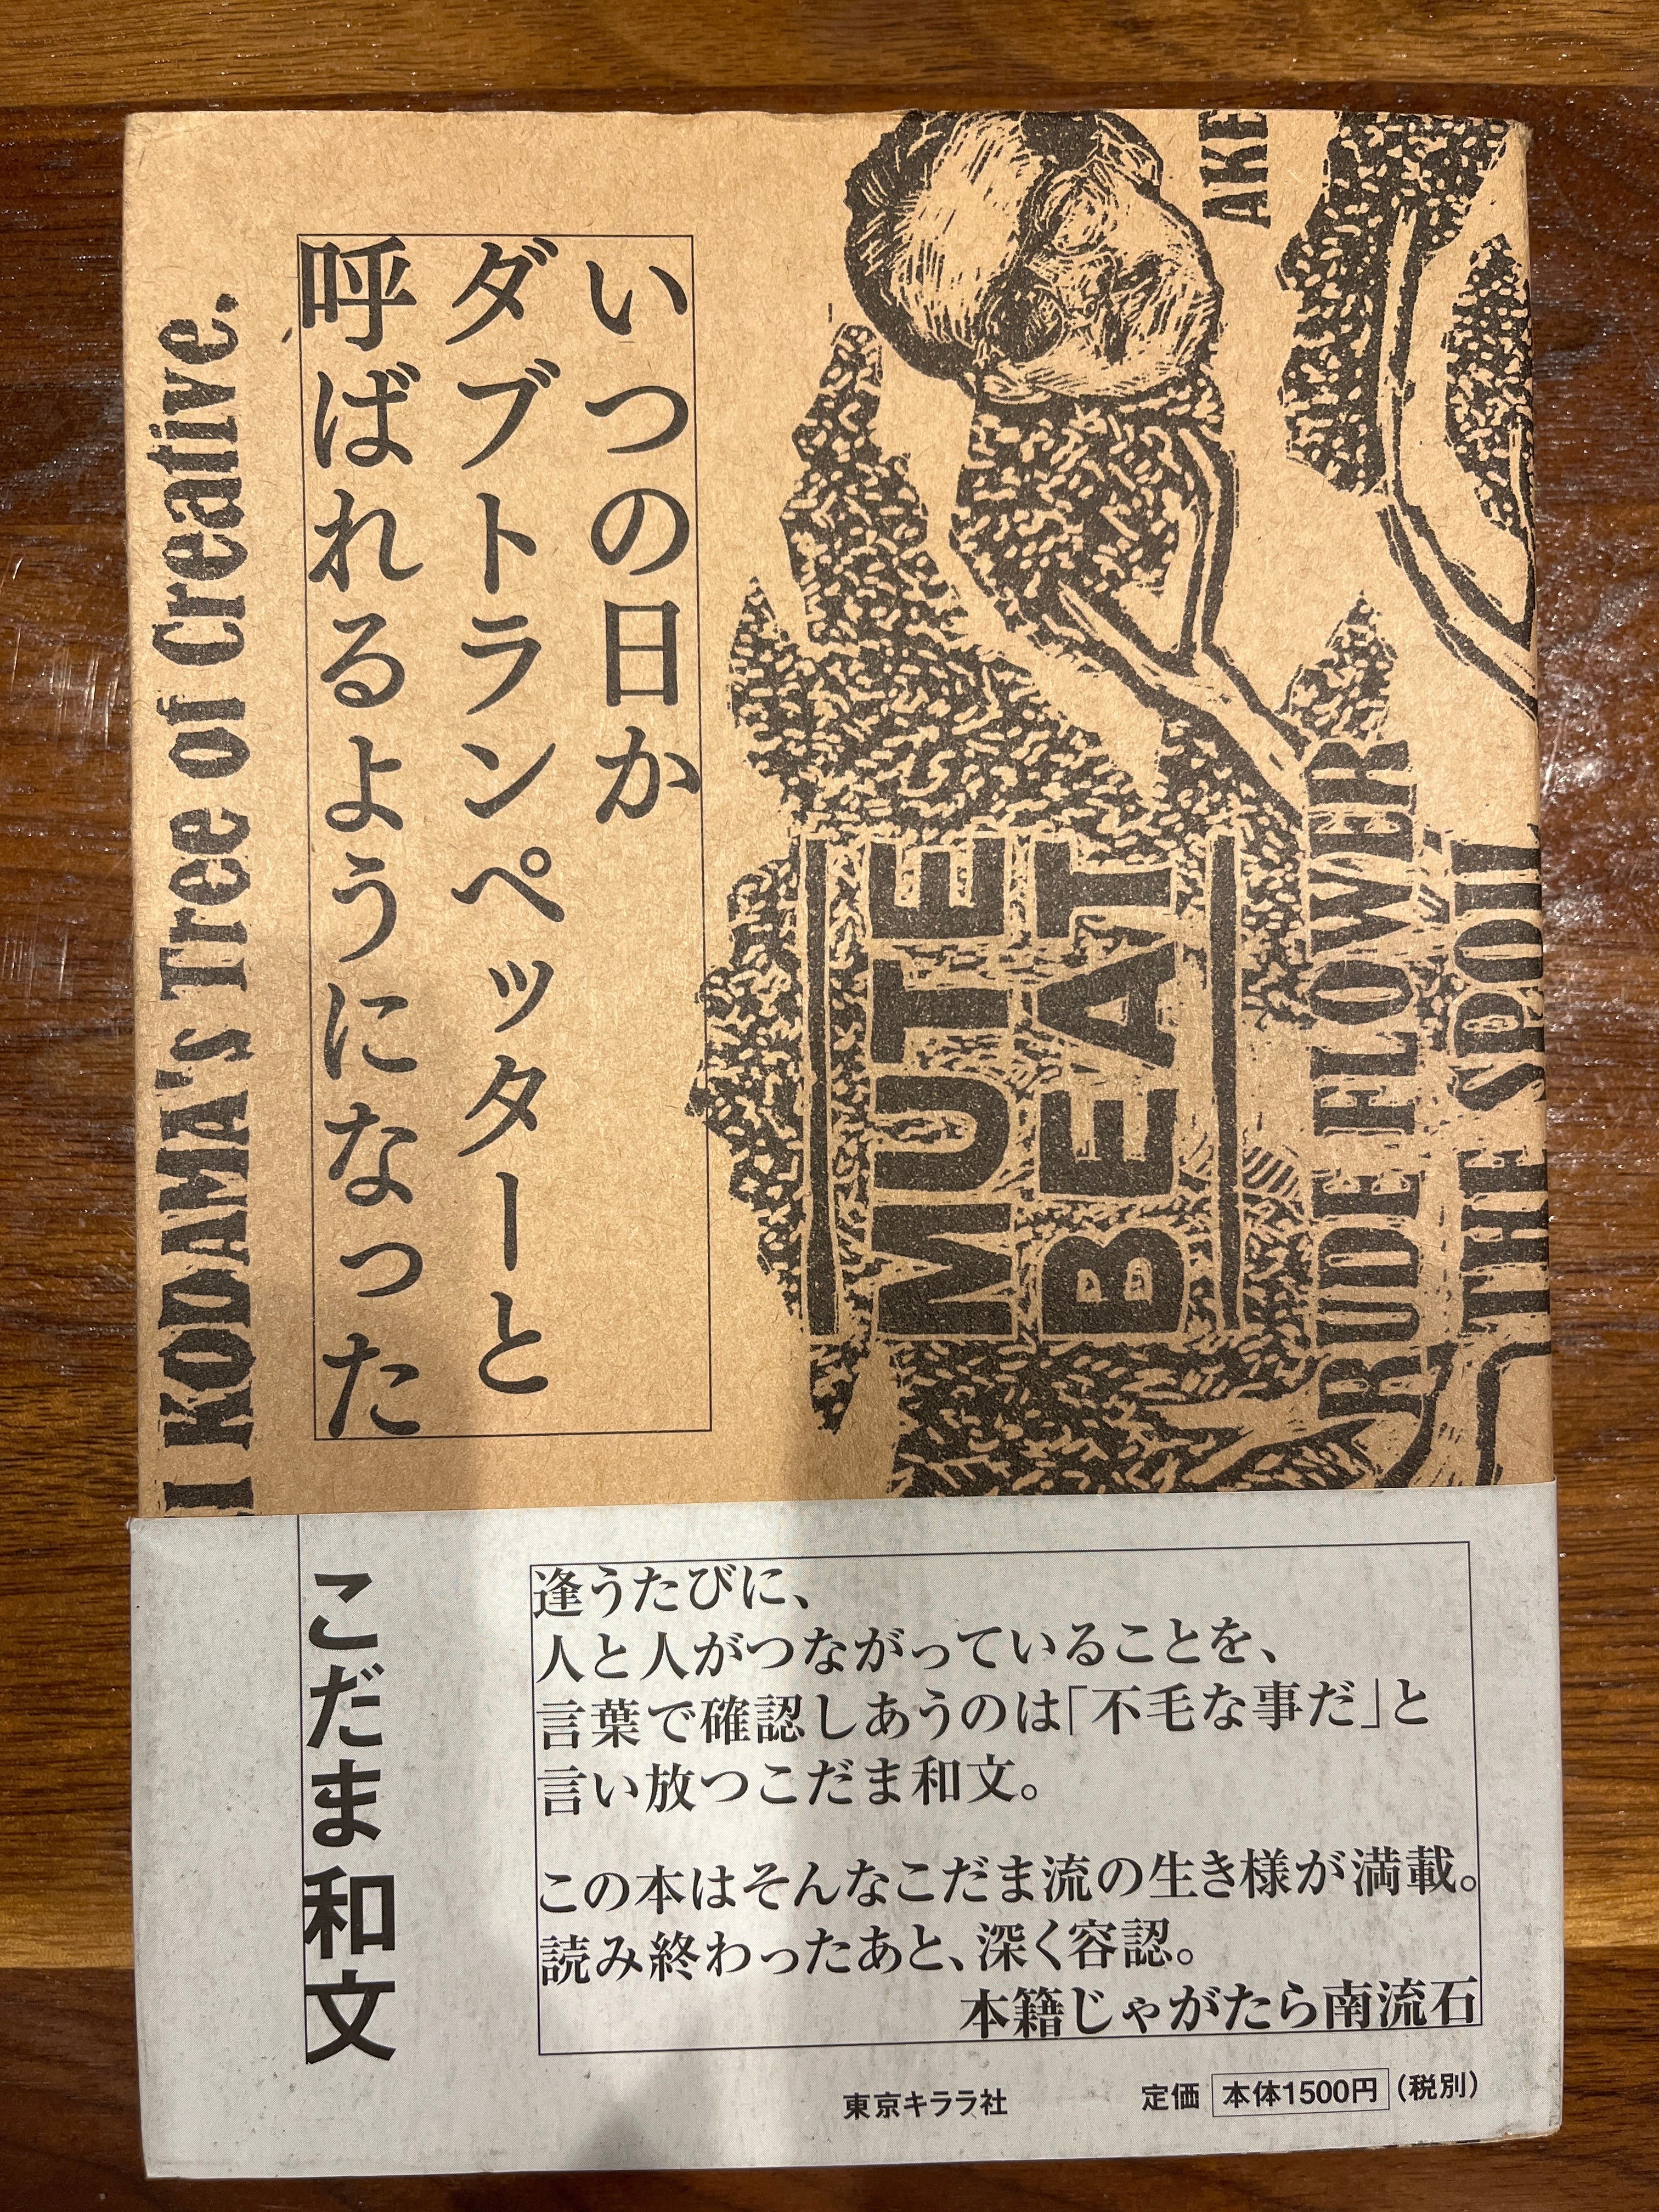 いつの日か
ダブトランペッターと
呼ばれるようになった
KODAMA's Tree of Creative.
MUTE
BEAT
RUDE FLOWER
THE SPOIL
AKE
こだま和文
逢うたびに、
人と人がつながっていることを、
言葉で確認しあうのは「不毛な事だ」と
言い放つこだま和文。
この本はそんなこだま流の生き様が満載。
読み終わったあと、深く容認。
本籍じゃがたら南流石
東京キララ社
定価 本体1500円 (税別)